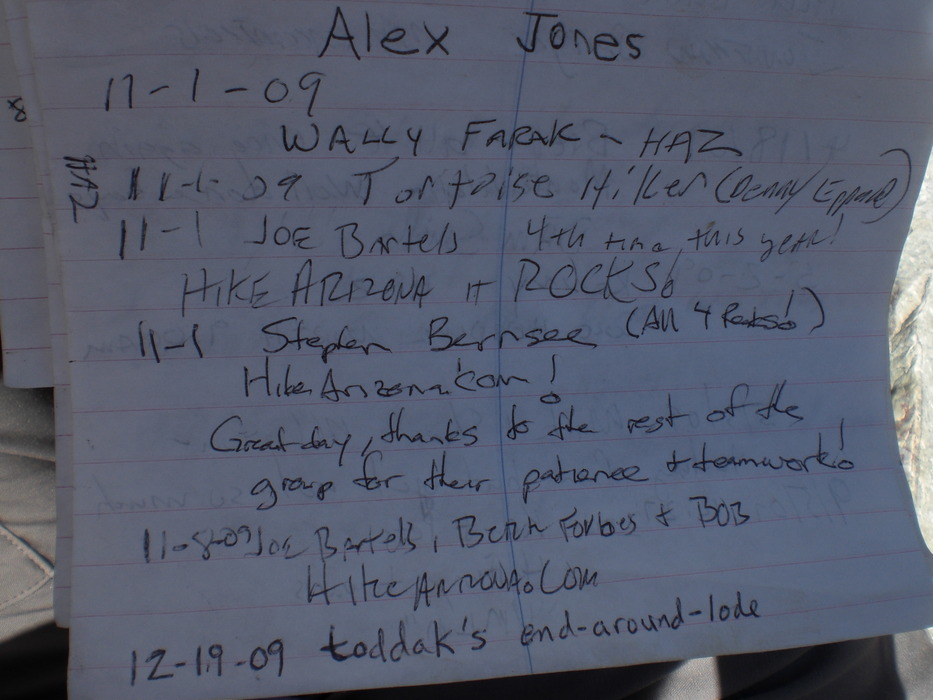 Alex Jones
11-1-09
WALLY FARAK - HAZ
HAZ
11-1-09 Tortoise Hiker (Denny Eppard)
11-1 JOE Bartels 4th time this year!
HIKE ARIZONA it ROCKS!
11-1 Stephen Bernsee (All 4 Peaks!)
HikeArizona.com!
Great day, thanks to the rest of the
group for their patience + teamwork!
11-8-09 JOE Bartels, Forbes + BOB
HikeArizona.Com
12-19-09 toddak's end-around-lode
8